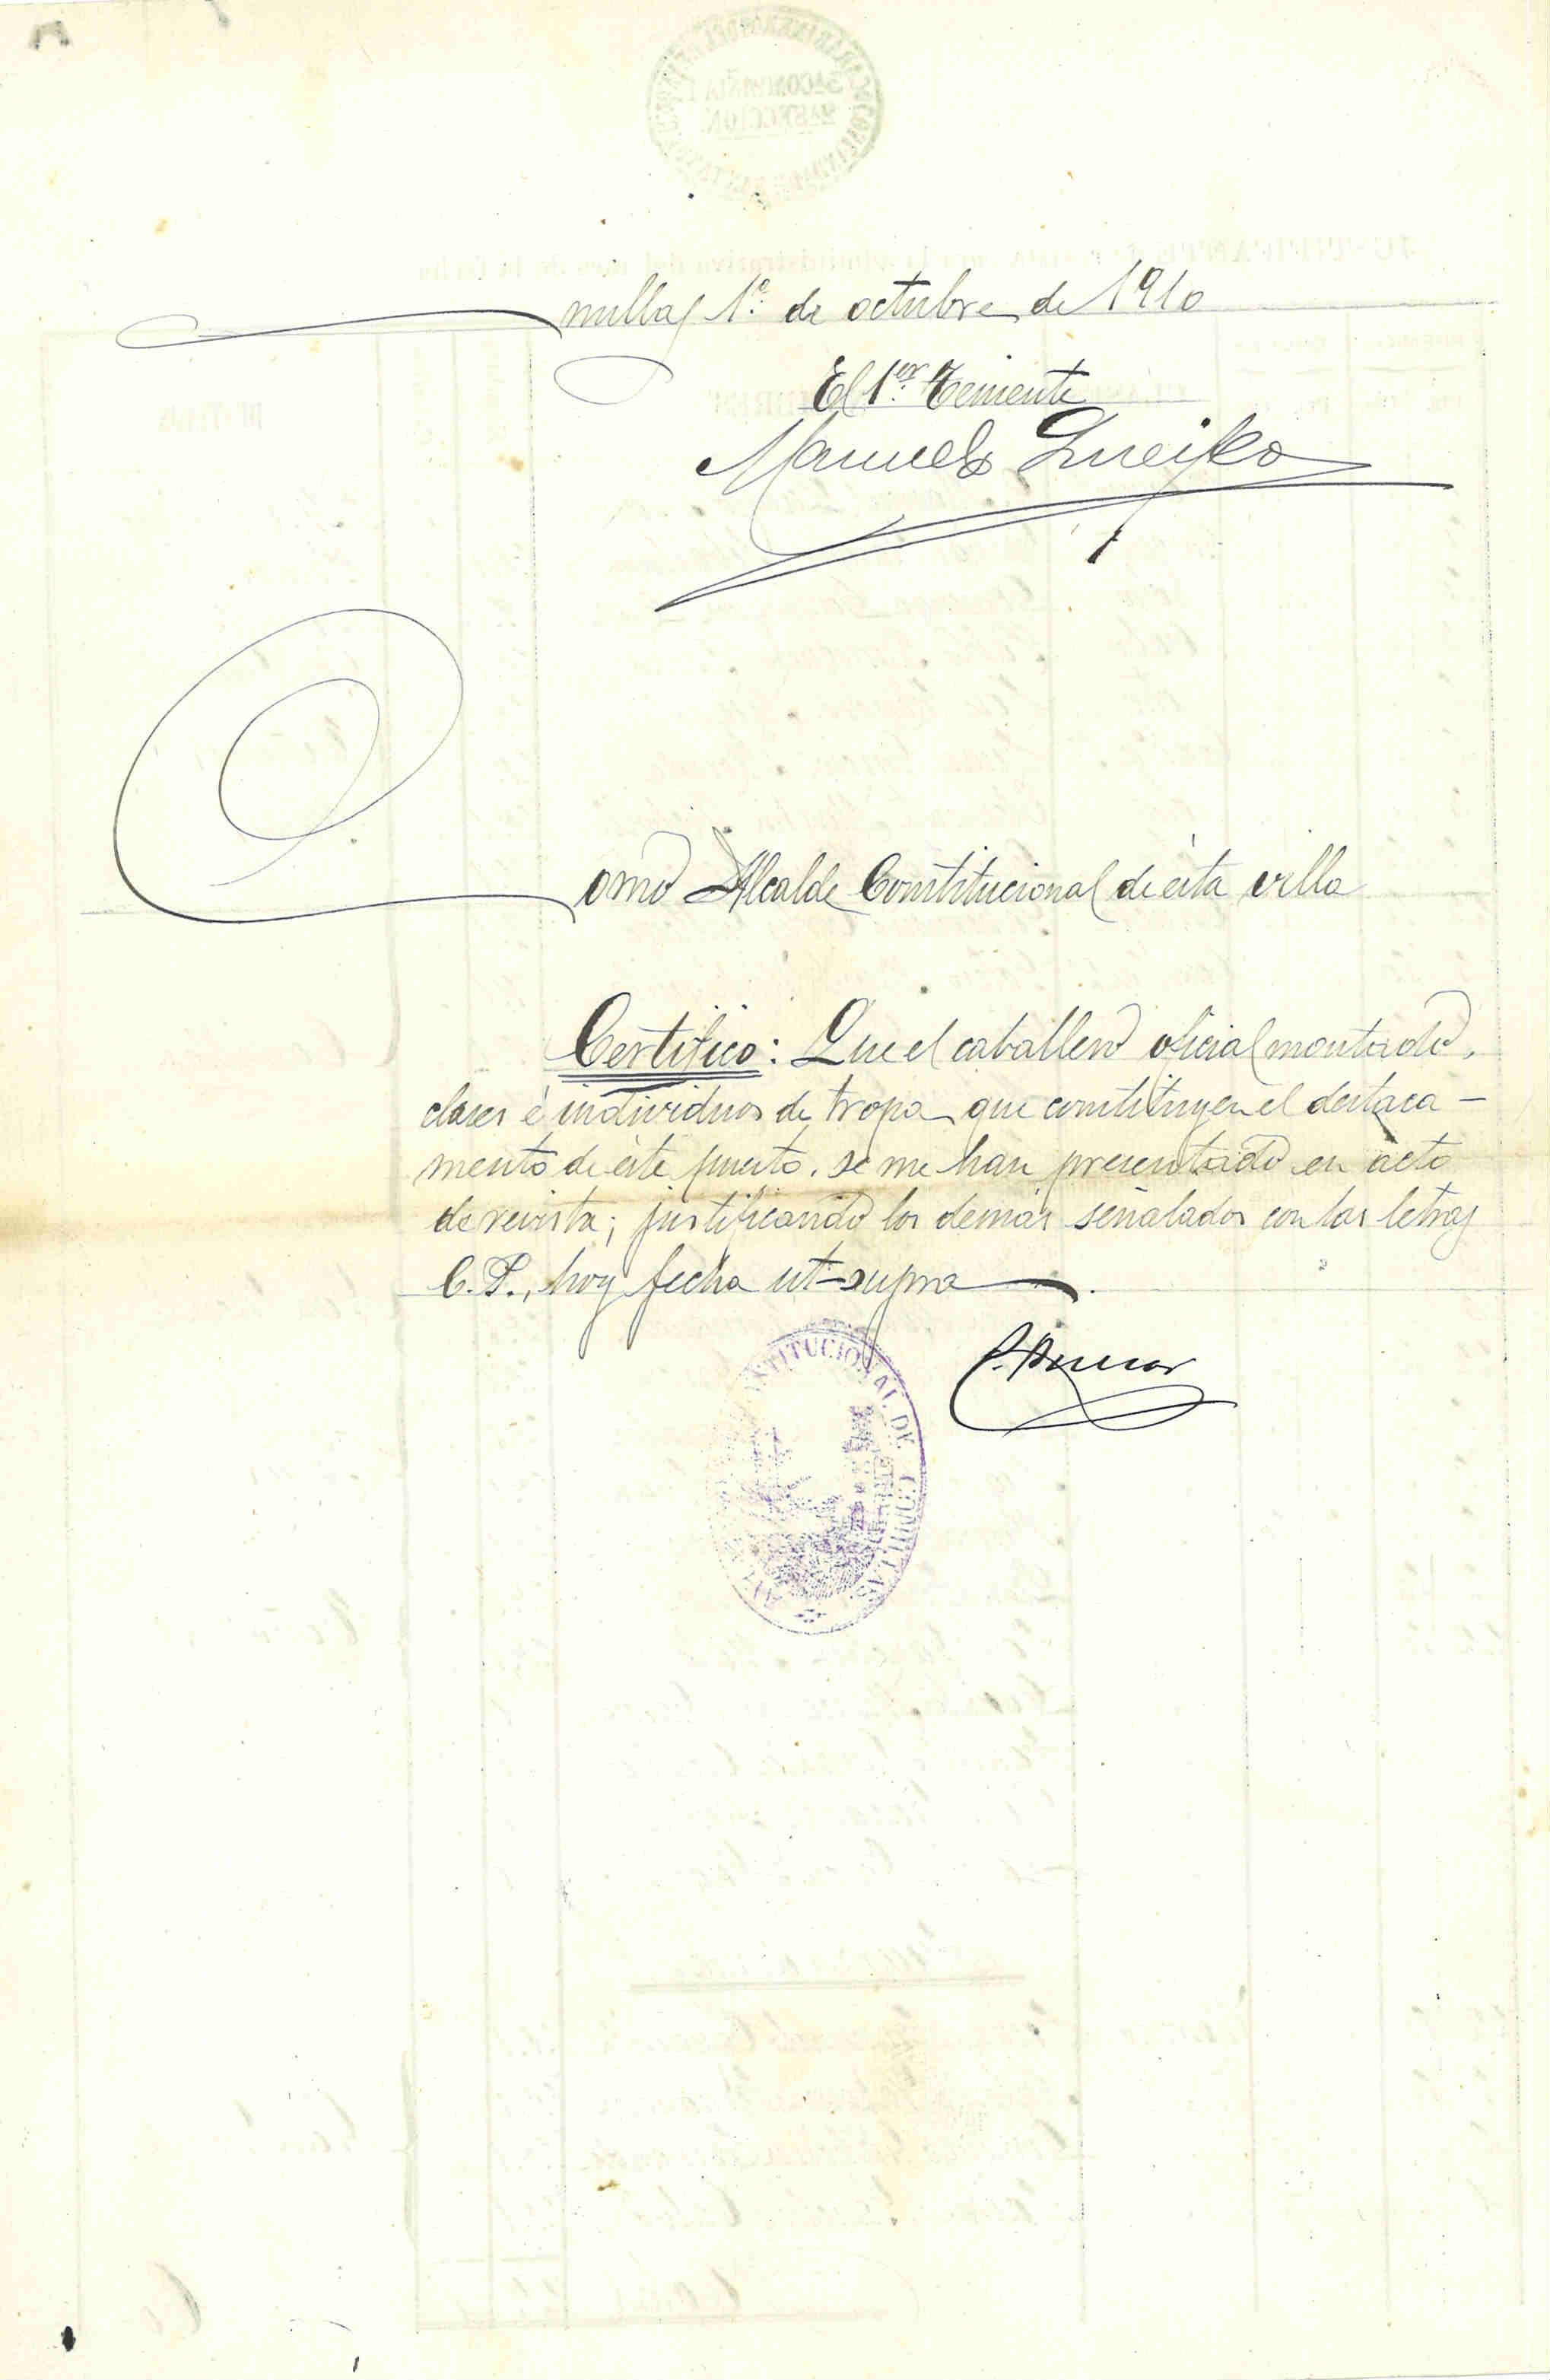 Comillas 1º. de octubre de 1910
El 1er. Teniente
Manuel
Como Alcalde Constitucional de ésta villa
Certifico: Que el caballero oficial montado,
clases é individuos de tropa que constituyen el destaca-
mento de éste puesto, se me han presentado en acto
de revista; justificando los demás señalados con las letras
C.P., hoy fecha ut-supra.
CONSTITUCIONAL DE COMILLAS